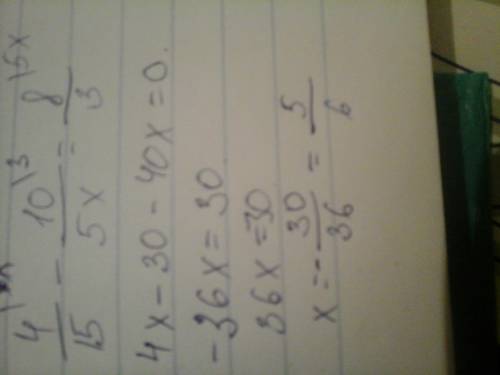 4/15 \x - 10/5x \3 = 8/3 \5x
4x - 30 - 40x = 0.
-36x = 30
36x = -30
x = - 30/36 = 5/6